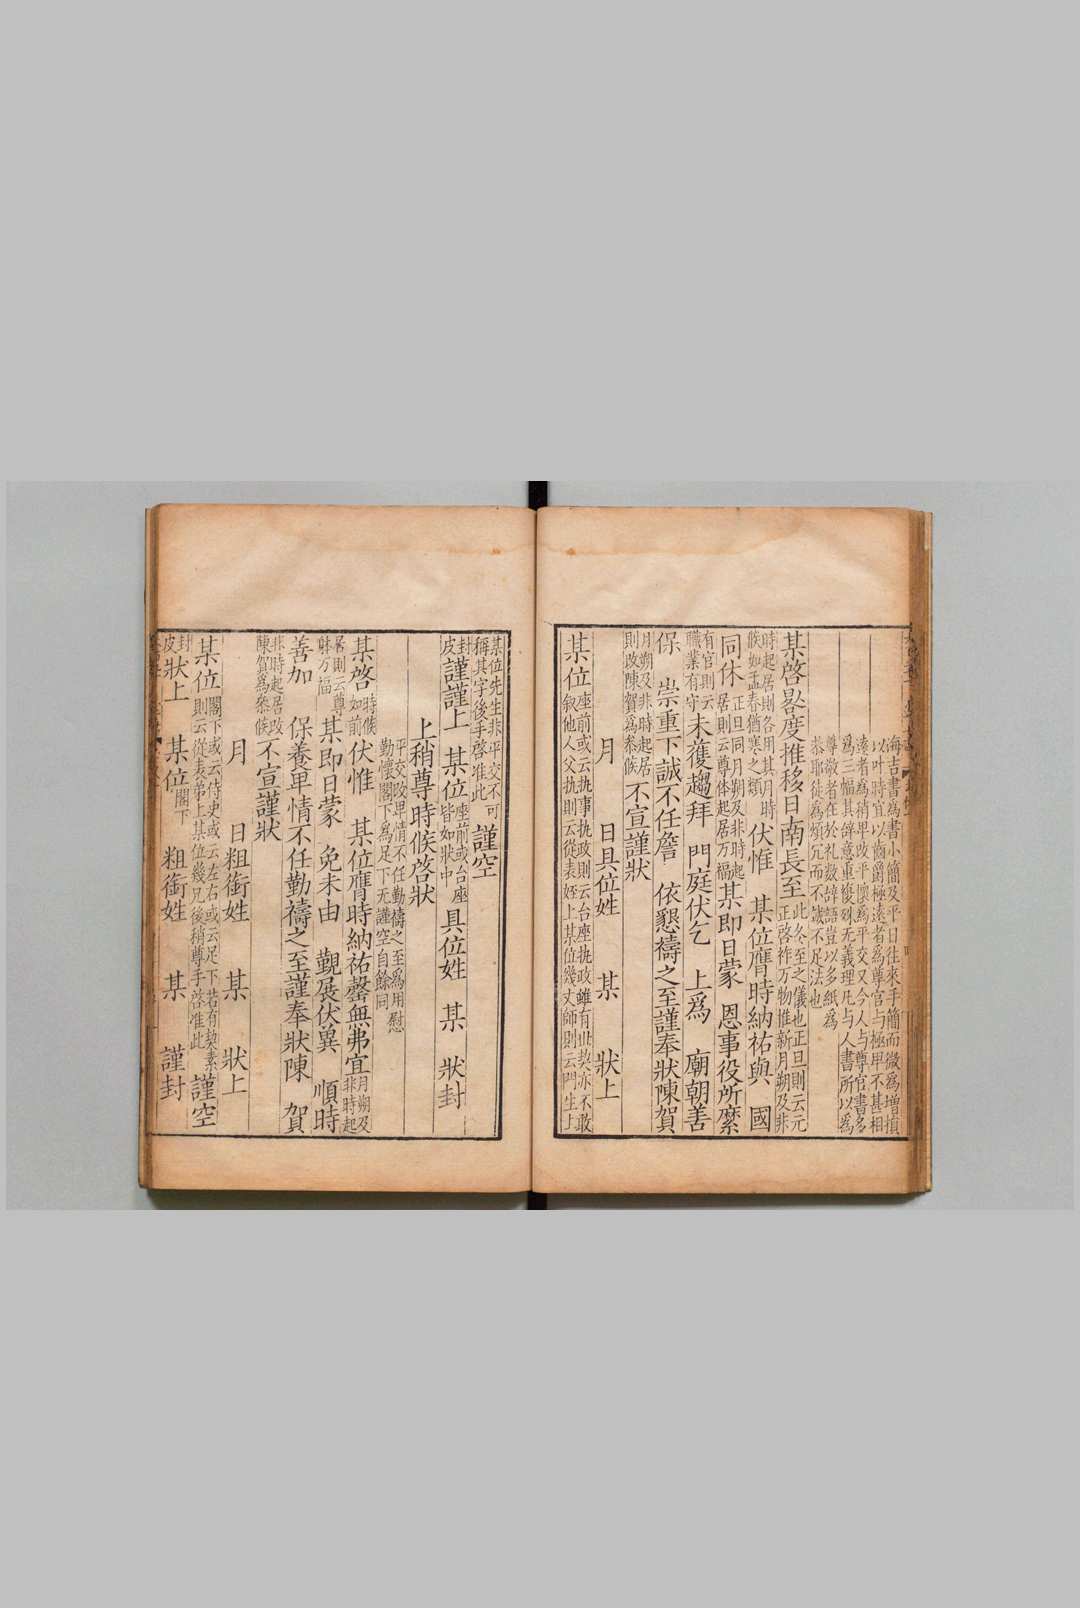 海吉書為書小簡及平日往來手簡而微為增損
以叶時宜以齒爵極遠者為尊官与極卑不甚相
遠者為稍卑改平懷為平交又今人与尊官書多
為三幅其辞意重複殊无義理凡与人書所以為
尊敬者在於礼数辞語豈以多紙為
恭耶徒為煩冗而不誠不足法也
某啓晷度推移日南長至此冬至之儀也正旦則云元
正啓祚万物惟新月朔及非
時起居則各用其月時
候如孟春猶寒之類伏惟　某位膺時納祐與　國
同休正旦同月朔及非時起
居則云尊体起居万福某即日蒙　恩事役所縻
有官則云
職業有守未獲趨拜　門庭伏乞　上為　廟朝善
保　崇重下誠不任詹　依懇禱之至謹奉狀陳賀
月朔及非時起居
則改陳賀為参候不宣謹狀
月　日具位姓　某　狀上
某位座前或云执事执政則云台座执政雖有此契亦不敢
叙他人父执則云從表姪上某位幾丈師則云門生
某位先生非平交不可
稱其字後手啓准此　謹空
封
皮謹謹上　某位座前或台座
皆如狀中　具位姓　某　狀封
上稍尊時候啓狀
平交改卑情不任勤禱之至為用慰
勤懷閣下為足下无謹空自餘同
某啓時候
如前伏惟　某位膺時納祐罄無弗宜月朔及
非時起
居則云尊
躰万福　某即日蒙　免未由　覲展伏冀　順時
善加　保養卑情不任勤禱之至謹奉狀陳　賀
非時起居改
陳賀為参候不宣謹狀
月　日粗銜姓　某　狀上
某位閣下或云侍史或云左右或云足下若有契素
則云從表弟上某位幾兄後稍尊手啓准此　謹空
封
皮狀上　某位閣下　粗銜姓　某　謹封